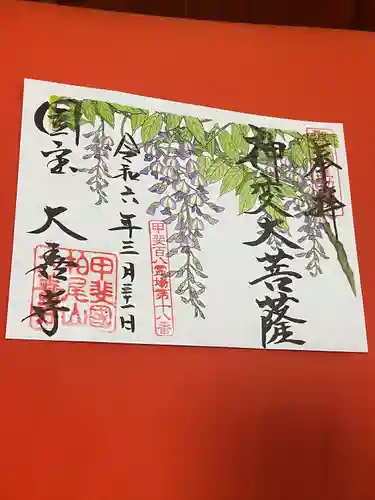 奉拝
神変大菩薩
甲斐百八霊場第十八番
令和六年三月三十一日
国宝 大善寺
甲斐國
柏尾山
大善寺